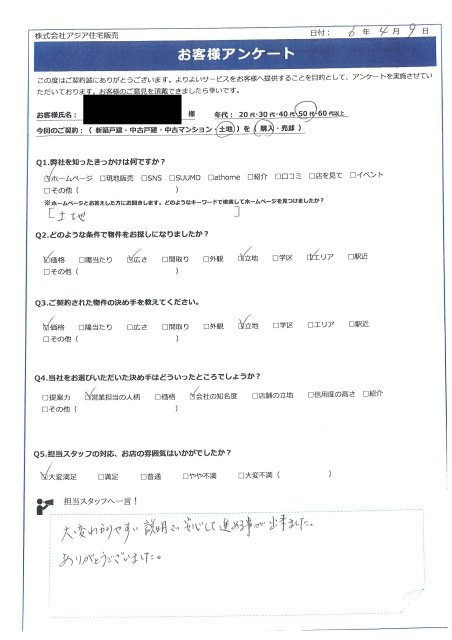 株式会社アジア住宅販売 日付： 6 年 4 月 9 日
お客様アンケート
この度はご契約誠にありがとうございます。よりよいサービスをお客様へ提供することを目的として、アンケートを実施させてい
ただいております。お客様のご意見を頂戴できましたら幸いです。
お客様氏名： 様 年代：20代・30代・40代・50代・60代以上
今回のご契約：（ 新築戸建・中古戸建・中古マンション・土地）を（ 購入・売却 ）
Q1.弊社を知ったきっかけは何ですか？
☑ホームページ □現地販売 □SNS □SUUMO □athome □紹介 □口コミ □店を見て □イベント
□その他（ ）
※ホームページとお答えした方にお聞きします。どのようなキーワードで検索してホームページを見つけましたか？
［土地 ］
Q2.どのような条件で物件をお探しになりましたか？
☑価格 □陽当たり ☑広さ □間取り □外観 ☑立地 □学区 ☑エリア □駅近
□その他（ ）
Q3.ご契約された物件の決め手を教えてください。
☑価格 □陽当たり □広さ □間取り □外観 ☑立地 □学区 □エリア □駅近
□その他（ ）
Q4.当社をお選びいただいた決め手はどういったところでしょうか？
□提案力 ☑営業担当の人柄 □価格 ☑会社の知名度 □店舗の立地 □信用度の高さ □紹介
□その他（ ）
Q5.担当スタッフの対応、お店の雰囲気はいかがでしたか？
☑大変満足 □満足 □普通 □やや不満 □大変不満（ ）
担当スタッフへ一言！
大変わかりやすい説明で安心して進める事が出来ました。
ありがとうございました。